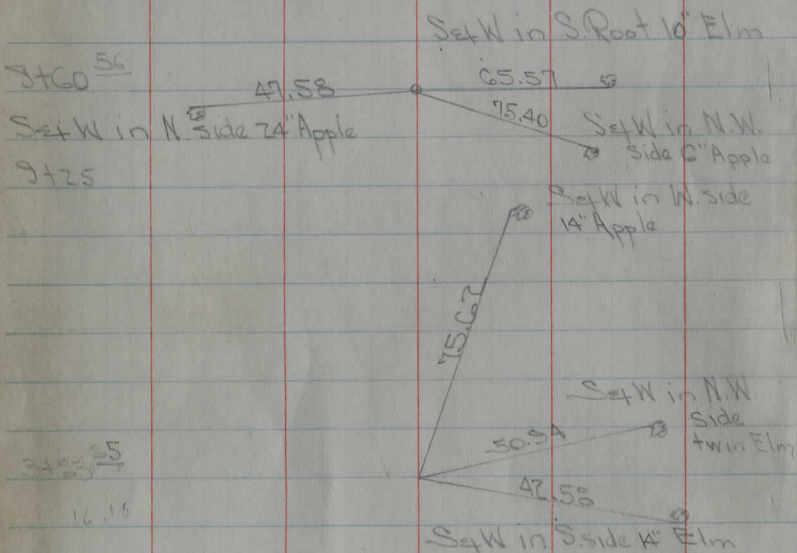 S&W in S. Root 10" Elm
9+60 56
47.58
65.57
75.40
S&W in N. side 24" Apple
S&W in N.W.
side 6" Apple
9+25
S&W in W. side
14" Apple
75.67
S&W in N.W
side
twin Elm
50.94
42.58
16.15
S&W in S. side 14" Elm